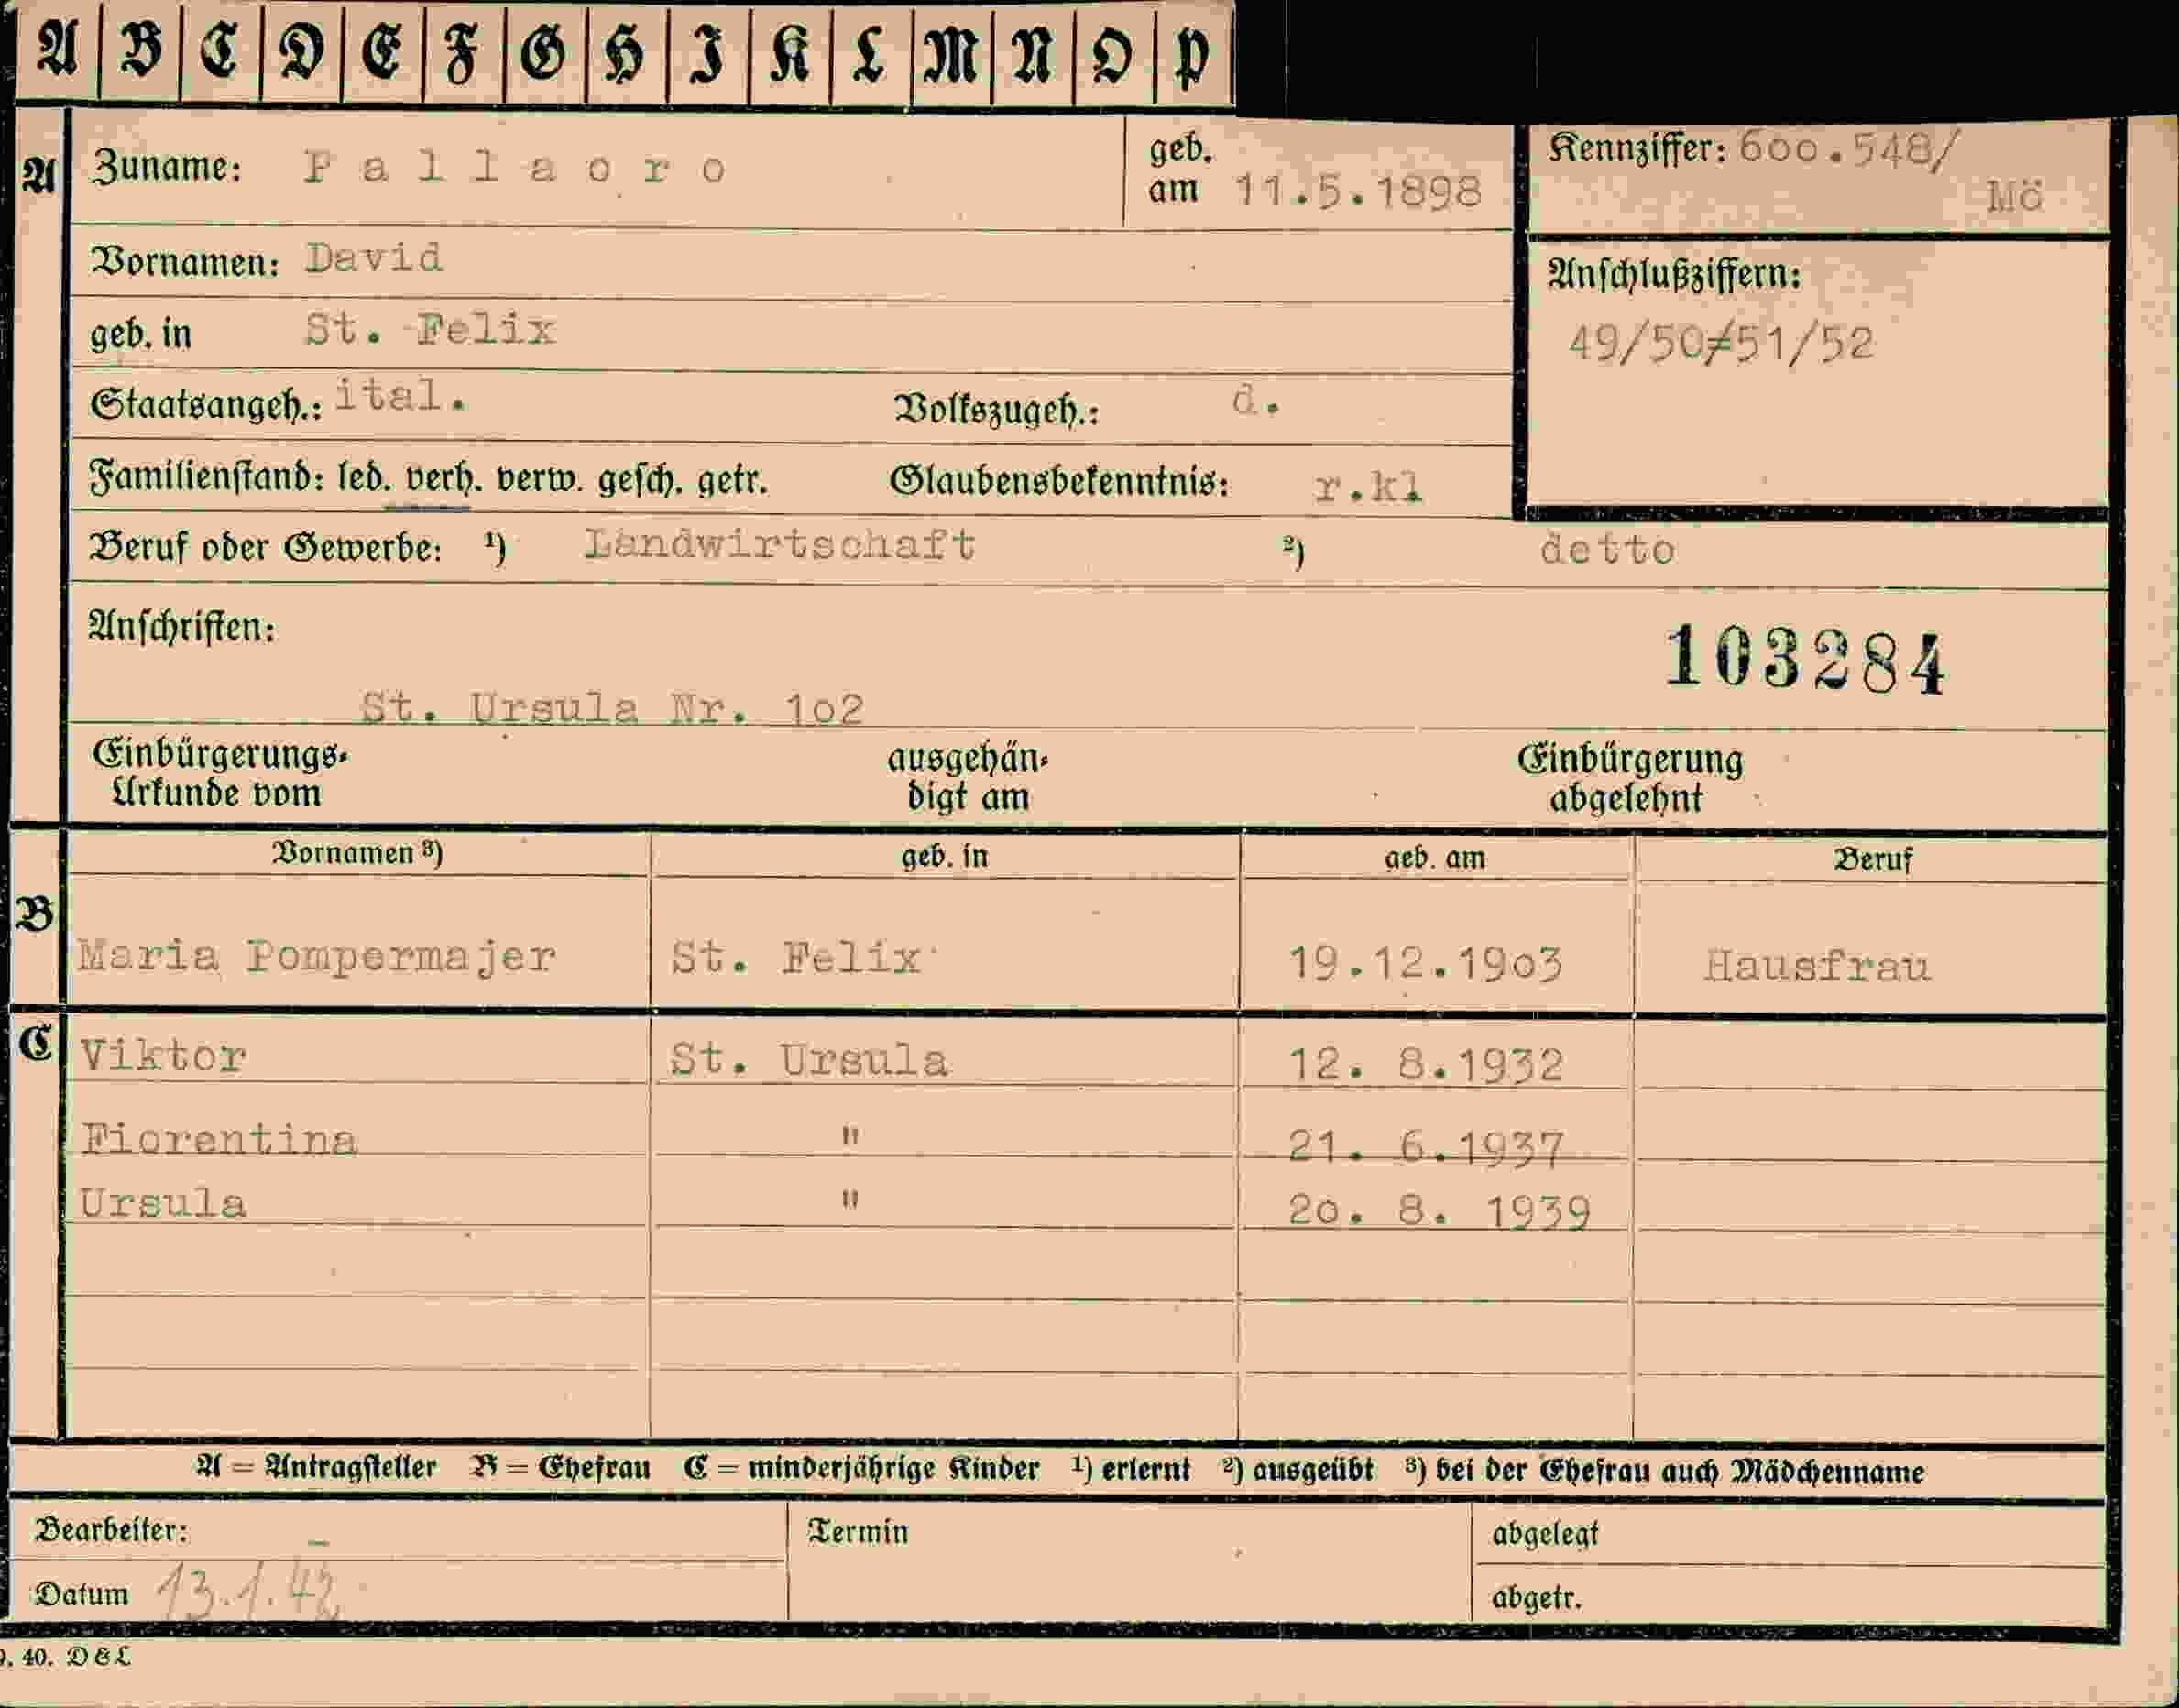 A B C D E F G H I K L M N O P
A Zuname: Pallaoro geb. am 11.5.1898 Kennziffer: 600.548/ Mö
Vornamen: David
Anschlußziffern:
geb. in St. Felix
49/50≠51/52
Staatsangeh.: ital. Volkszugeh.: d.
Familienstand: led. verh. verw. gesch. getr. Glaubensbekenntnis: r.kl
Beruf oder Gewerbe: ¹) Landwirtschaft ²) detto
Anschriften:
103284
St. Ursula Nr. 1o2
Einbürgerungs- ausgehän- Einbürgerung
Urkunde vom digt am abgelehnt
Vornamen ³) geb. in geb. am Beruf
B
Maria Pompermajer St. Felix 19.12.19o3 Hausfrau
C
Viktor St. Ursula 12. 8.1932
Fiorentina " 21. 6.1937
Ursula " 2o. 8. 1939
A = Antragsteller B = Ehefrau C = minderjährige Kinder ¹) erlernt ²) ausgeübt ³) bei der Ehefrau auch Mädchenname
Bearbeiter: Termin abgelegt
Datum 13.1.42 abgetr.
9. 40. D&L